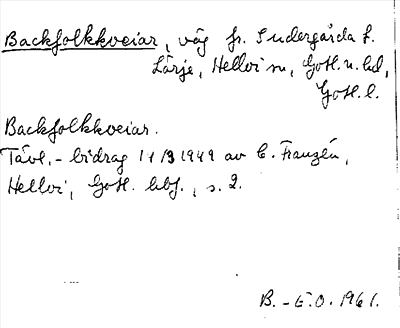 Backfolkkveiar, väg fr. Sudergårda t.
Lärje, Hellvi sn, Gotl. n. hd,
Gotl. l.
Backfolkkveiar.
Tävl.-bidrag 11/3 1949 av C. Franzén,
Hellvi, Gotl. bbf., s. 2.
B.-E.O. 1961.